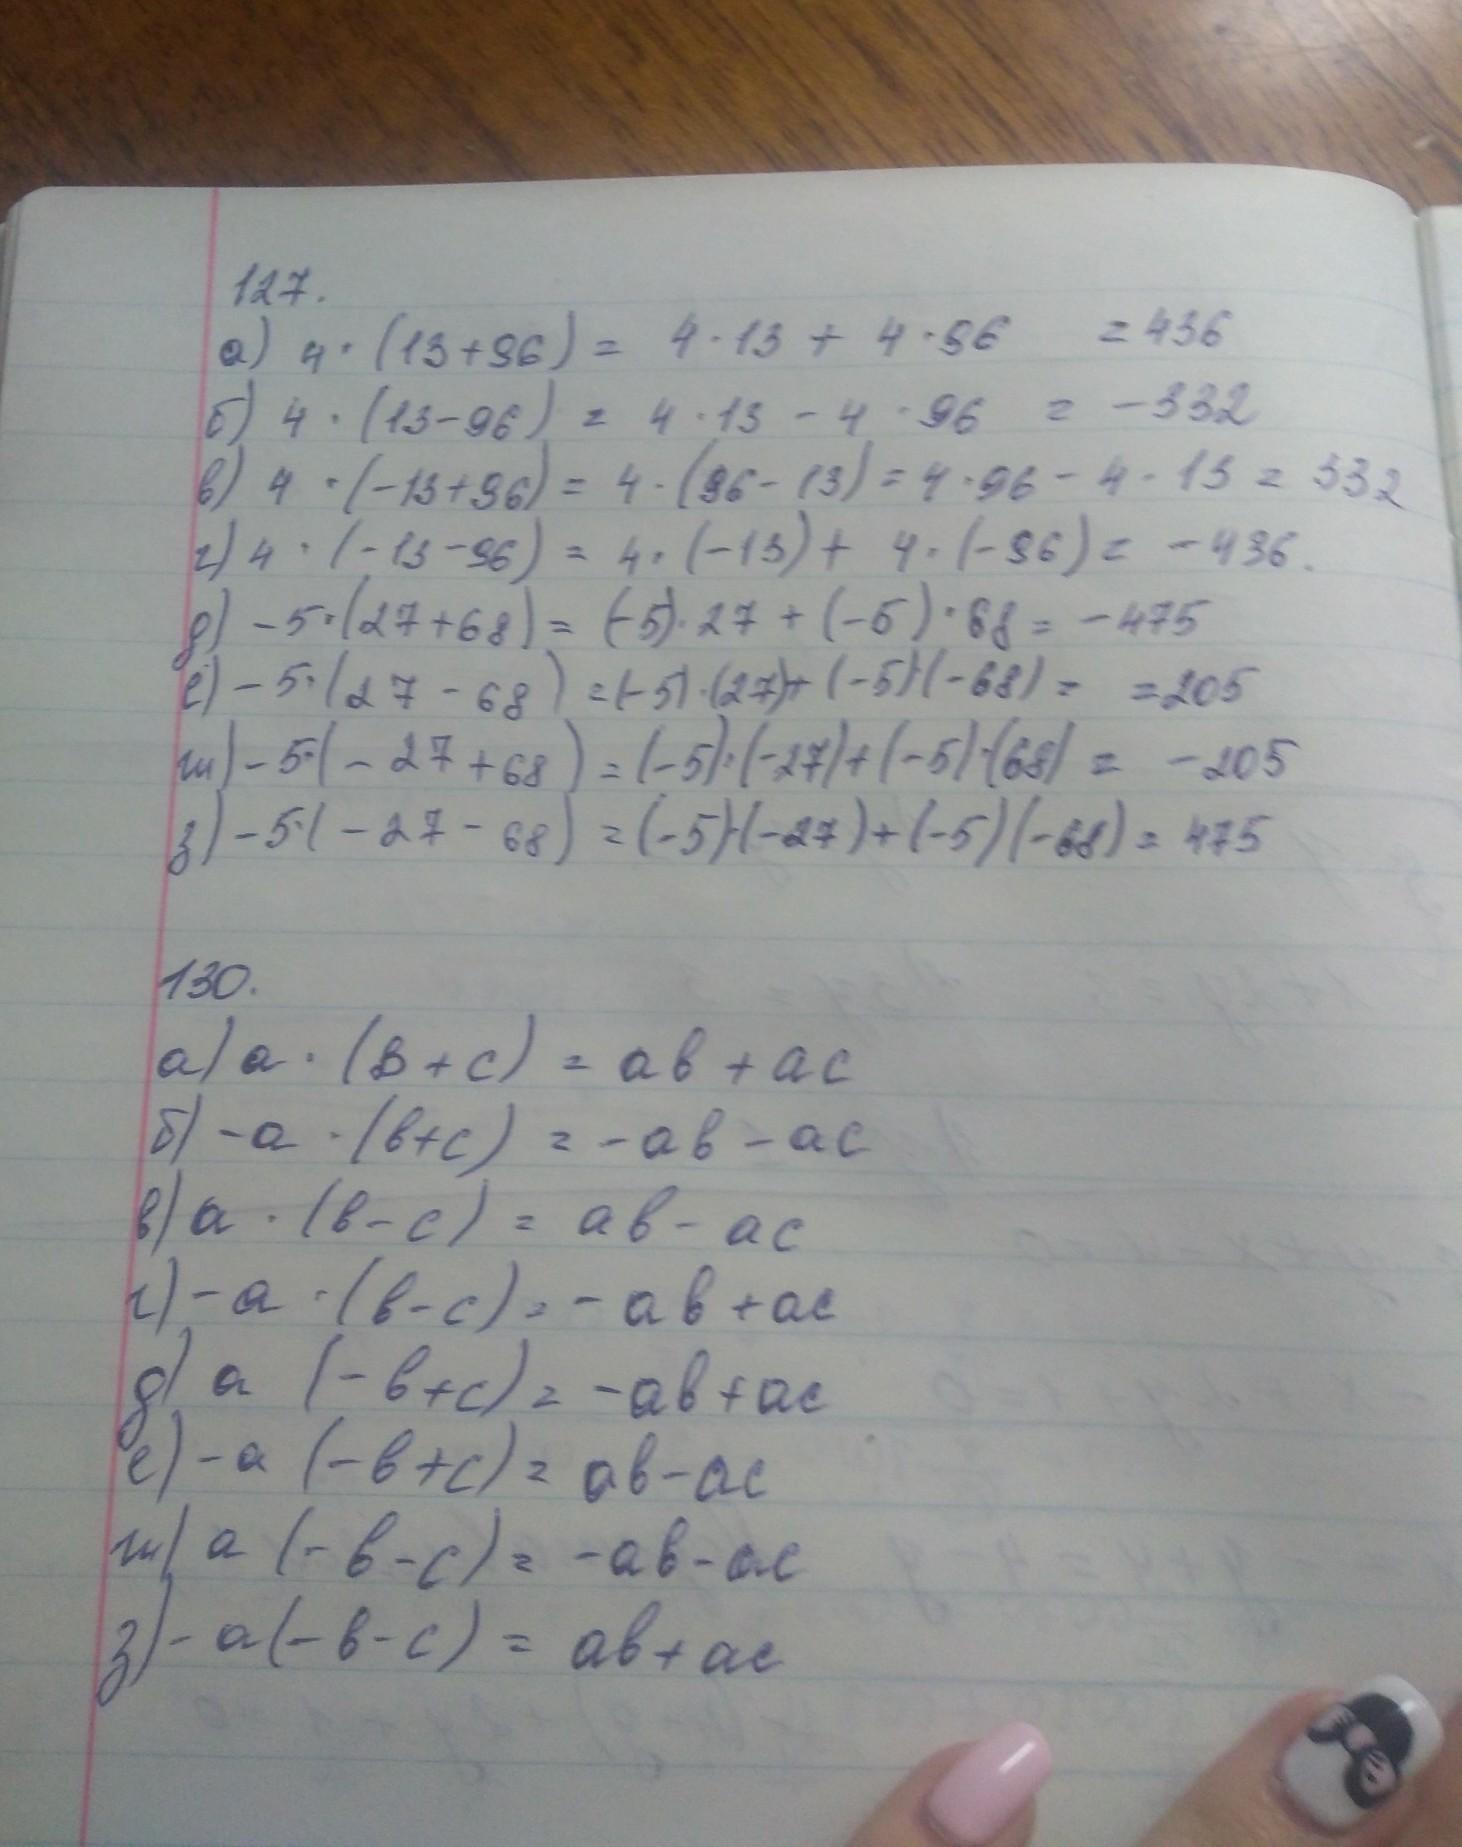 127.
а) 4·(13+96) = 4·13 + 4·96 = 436
б) 4·(13-96) = 4·13 - 4·96 = -332
в) 4·(-13+96) = 4·(96-13) = 4·96 - 4·13 = 332
г) 4·(-13-96) = 4·(-13) + 4·(-96) = -436.
д) -5·(27+68) = (-5)·27 + (-5)·68 = -475
е) -5·(27-68) = (-5)·(27)+(-5)·(-68) = = 205
ж) -5·(-27+68) = (-5)·(-27)+(-5)·(68) = -205
з) -5·(-27-68) = (-5)·(-27)+(-5)(-68) = 475
130.
а) a·(в+c) = aв + ac
б) -a·(в+c) = -aв - ac
в) a·(в-c) = aв - ac
г) -a·(в-c) = -aв + ac
д) a (-в+c) = -aв+ac
е) -a (-в+c) = aв-ac
ж) a (-в-c) = -aв-ac
з) -a(-в-c) = aв+ac